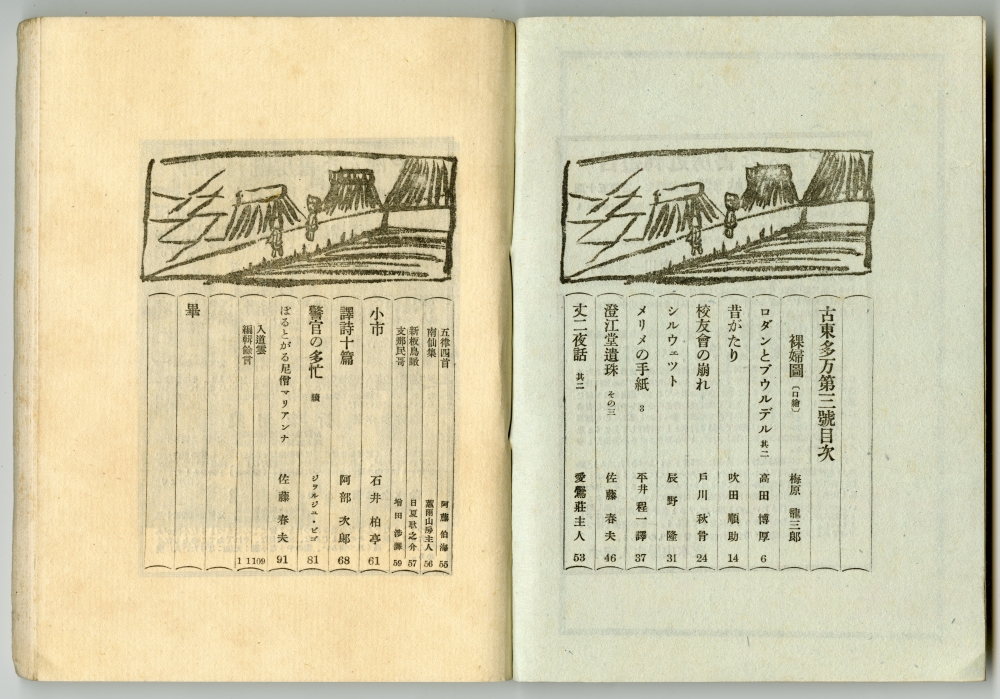 古東多万第三號目次
裸婦圖〔口繪〕 梅原龍三郎
ロダンとブウルデル 其二 高田博厚 6
昔がたり 吹田順助 14
校友會の崩れ 戸川秋骨 24
シルウェット 辰野隆 31
メリメの手紙 3 平井程一譯 37
澄江堂遺珠 その三 佐藤春夫 46
丈二夜話 其二 愛鶯莊主人 53
五律四首 阿藤伯海 55
南仙集 蕙雨山房主人 56
新板鳥瞰 日夏耿之介 57
支那民哥 增田涉譯 59
小市 石井柏亭 61
譯詩十篇 阿部次郎 68
警官の多忙 續 ジヨルジユ・ビゴ 81
ぽるとがる尼僧マリアンナ 佐藤春夫 91
入道雲 109
編輯餘言 11
畢